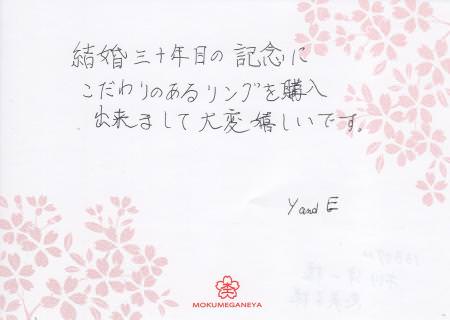 結婚三十年目の記念に
こだわりのあるリングを購入
出来まして大変嬉しいです。
Y and E
MOKUMEGANEYA